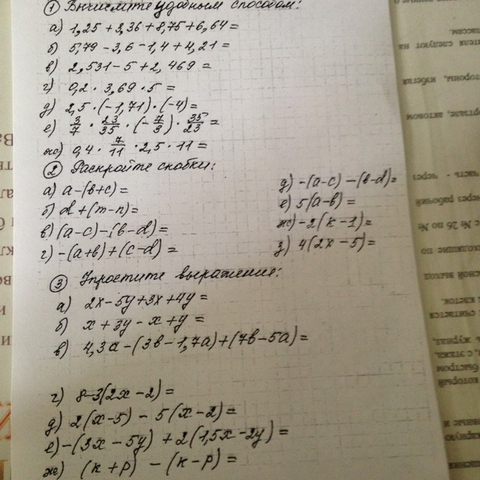 ① Вычислите удобным способом:
а) 1,25 + 3,36 + 8,75 + 6,64 =
б) 5,79 - 3,6 - 1,4 + 4,21 =
в) 2,531 - 5 + 2,469 =
г) 0,2 · 3,69 · 5 =
д) 2,5 · (-1,71) · (-4) =
е) 3/7 · 23/35 · (-7/3) · 35/23 =
ж) 0,4 · 7/11 · 2,5 · 11 =
② Раскройте скобки:
а) a - (b + c) =
б) d + (m - n) =
в) (a - c) - (b - d) =
г) - (a + b) + (c - d) =
д) - (a - c) - (b - d) =
е) 5(a - b) =
ж) -2(k - 1) =
з) 4(2x - 5) =
③ Упростите выражения:
а) 2x - 5y + 3x + 4y =
б) x + 3y - x + y =
в) 4,3a - (3b - 1,7a) + (7b - 5a) =
г) 8 - 3(2x - 2) =
д) 2(x - 5) - 5(x - 2) =
е) - (3x - 5y) + 2(1,5x - 2y) =
ж) (k + p) - (k - p) =